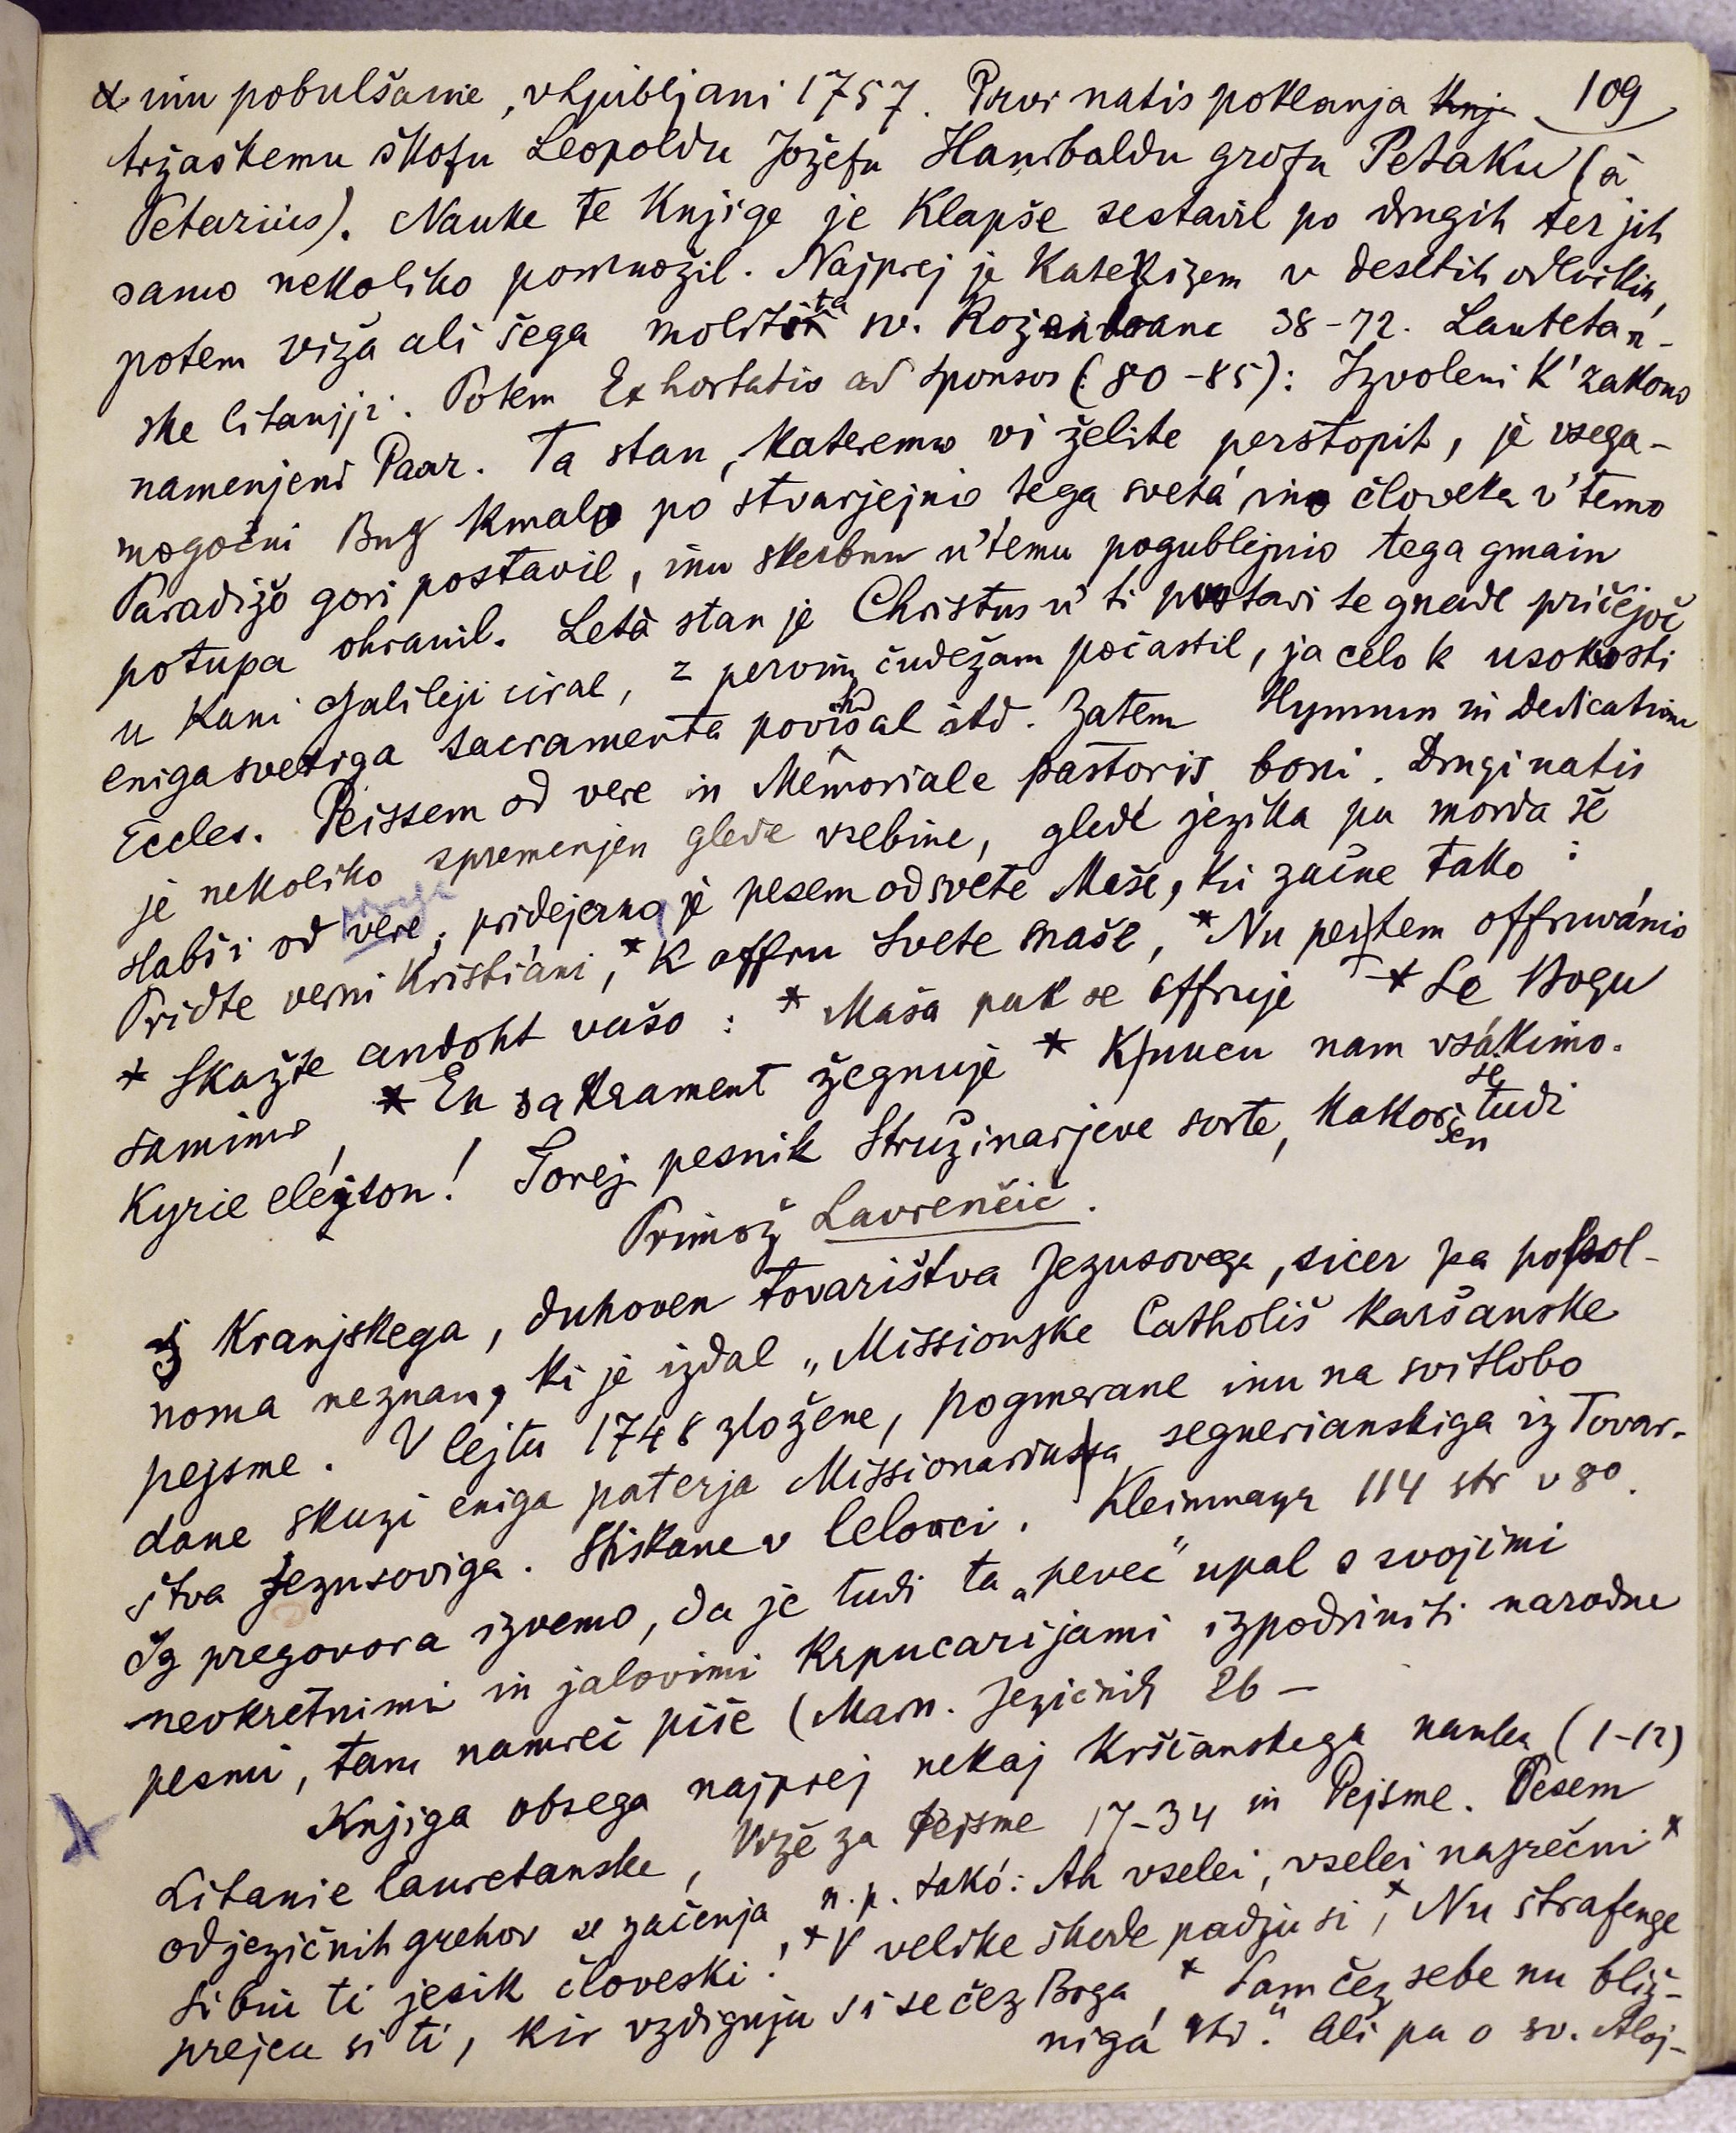 & inu pobulšanie, v Ljubljani 1757. Prvi natis poklanja knj 109
tržaškemu škofu Leopoldu Jožefu Hanibaldu grofu Petaku (à
Petazius). Nauke te knjige je Klapše sestavil po drugih ter jih
samo nekoliko pomnožil. Najprej je katekizem v desetih odlvikih,
potem viža ali šega molitvi ta sv. Rožankrane 38-72. Lauretan-
ske litanije. Potem Exhortatio ad sponsos (80-85): Izvoleni k' zakono
namenjeni Paar. Ta stan, kateremo vi želite perstopit, je vsega-
mogočni Bug kmalo po stvarjejnio tega svetá ino človeka v' temo
Paradižo gori postavil, inu skerbnu u' temu pogublejnio tega gmain
potupa ohranil. Letà stan je Christus u' ti postavi te gnade pričejoč
u Kani Galileji iural, z pervim čudežam počastil, ja celo k usokosti
eniga svetiga sacramenta povišal itd. Zatem Hymnun in dedicatione
Eccles. Peissem od vere in Memoriale pastoris boni. Drugi natis
je nekoliko spremenjen glede vsebine, gledé jezika pa morda še
slabši od vere prvega; pridejerna je pesem od svete Maše, ki začne tako:
Pridte verni Kristiáni, * K offru svete maše, * Nu pertem offruvánio
* Skažte andoht vašo: * Maša pak se offruje * Le Bogu
samimo, * En sakrament žegnuje * K nucu nam vsákimo.
Kyrie eléjson! Torej pesnik Stružinarjeve sorte, kakoršen se tudi
Primož Lavrenčič.
Z Kranjskega, duhoven tovarištva Jezusovega, sicer pa popol-
noma neznan, ki je izdal „Missionske Catholiš karšanske
pejsme. V lejtu 1748 zložene, pogmerane inu na svitlobo
dane skuzi eniga paterja Missionariussa segnerianskiga iz Tovar-
štva Jezusoviga. Štiskane v Celovci. Kleinmayr 114 str v 8º.
Iz pregovora izvemo, da je tudi ta „pevec" upal s svojimi
neokretnimi in jalovimi kapucarijami izpodriniti narodne
pesmi, tam namreč piše (Marn. Jezičnik 26 –
Knjiga obsega najprej nekaj krščanskega nauka (1-12)
Litanie lauretanske, viže za pejsme 17-34 in Pejsme. Pesem
od jezičnih grehov se začenja n. p. takó: Ah vselei, vselei nasrečni *
si biu ti jesik človeski! * V velike škode padju si, * Nu štrafenge
prejeu si ti, kir vzdiguju si se čez Boga, * Sam čez sebe nu bliž-
nigá itd." Ali pa o sv. Aloj-